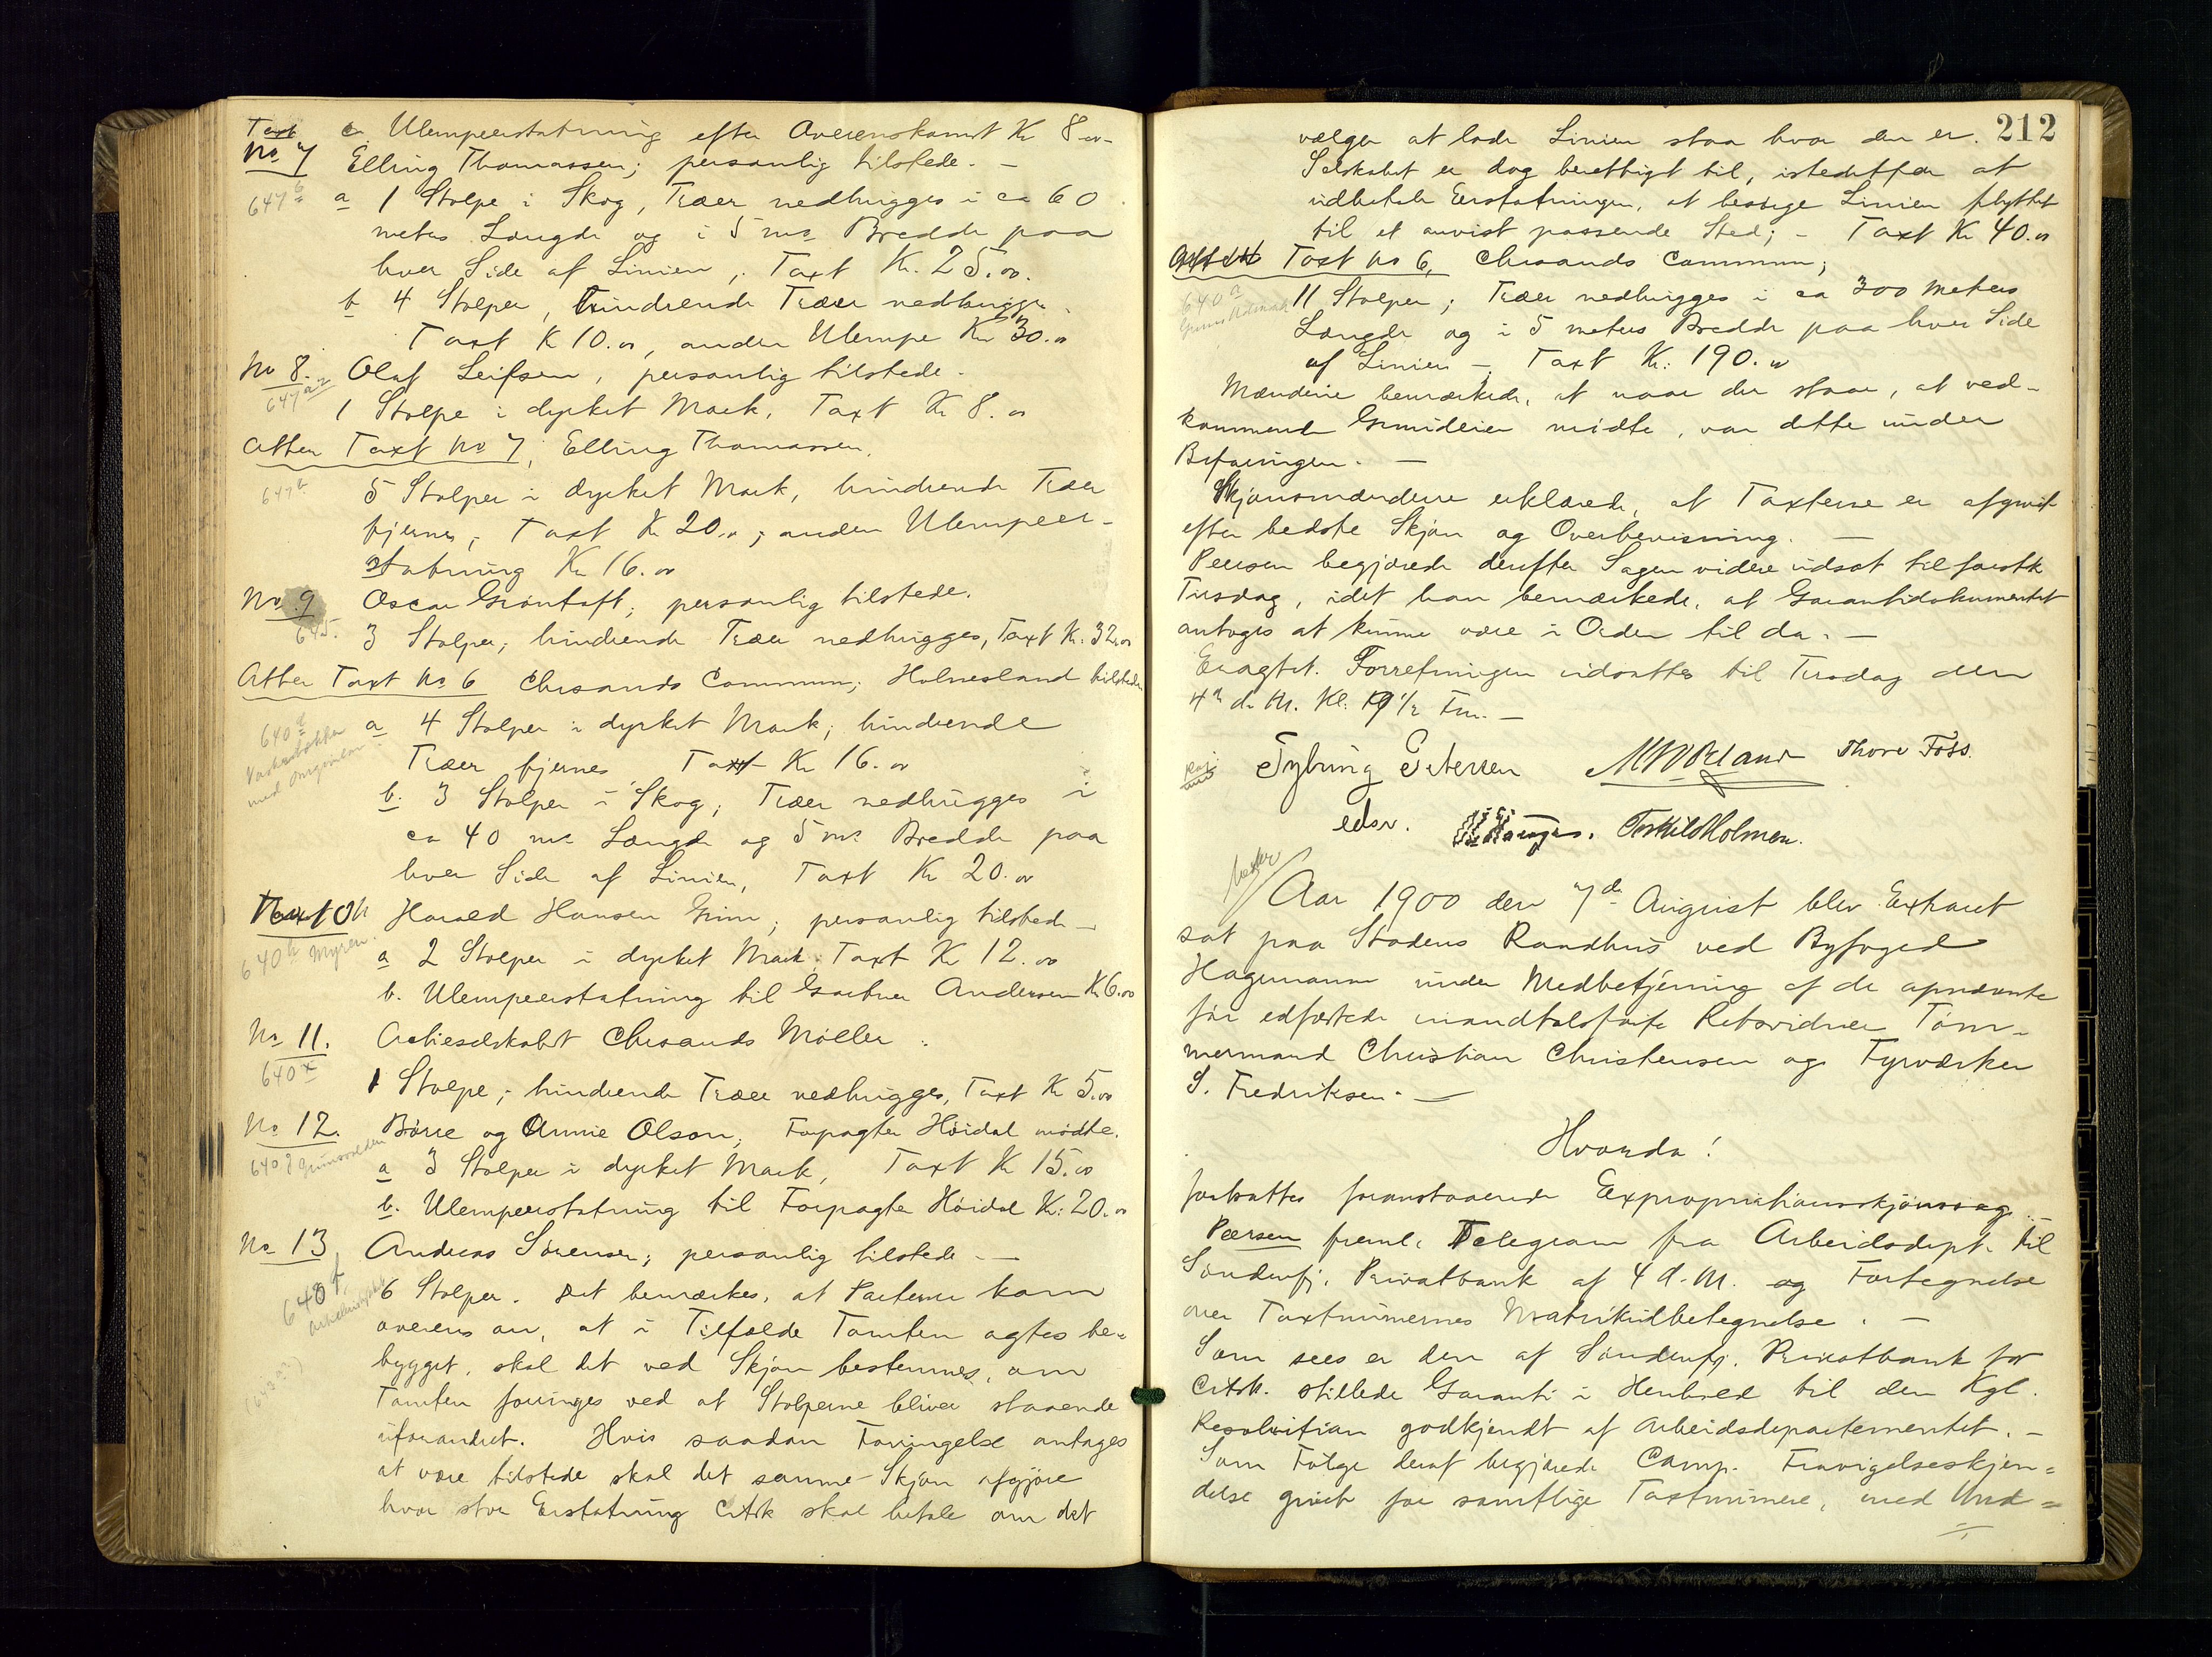 c. Ulempeerstatning efter Overenskomst Kr 8.00
Taxt No 7 Elling Thomassen; personlig tilstede. —
647b a 1 Stolpe i Skog, Træer nedhugges i ca 60
meters Længde og i 5 mrs Bredde paa
hver Side af Linien; Taxt Kr. 25.00.
b 4 Stolper, hindrende Træer nedhugges.
Taxt K 10.00, anden Ulempe Kr 30.00
No 8. Olaf Leifsen, personlig tilstede.
647
1 Stolpe i dyrket Mark, Taxt Kr 8.00
Atter Taxt No 7, Elling Thomassen.
647b 5 Stolper i dyrket Mark, hindrende Træer
fjernes; Taxt Kr 20.00; anden Ulempeer-
statning Kr 16.00
No 9 Oscar Grøntoft; personlig tilstede.
645. 3 Stolper; hindrende Træer nedhugges, Taxt K. 32.00
Atter Taxt No 6 Chrsands Commun; Holmesland tilstede
640d a 4 Stolper i dyrket Mark; hindrende
Træer fjernes Taxt Kr 16.00
med
b. 3 Stolper i Skog; Træer nedhugges i
ca 40 mrs Længde og 5 mrs Bredde paa
hver Side af Linien, Taxt Kr 20.00
Harald Hansen Grim; personlig tilstede —
640h Myren a 2 Stolper i dyrket Mark; Taxt Kr 12.00
b. Ulempeerstatning til Gartner Andersen K 6.00
No 11. Actieselskabet Chrsands Møller.
640x
1 Stolpe; hindrende Træer nedhugges, Taxt Kr 5.00
No 12. Børre og Annie Olson; Forpagter Høidal mødte.
640g a 3 Stolper i dyrket Mark, Taxt Kr 15.00
b. Ulempeerstatning til Forpagter Høidal K: 20.00
No 13 Andreas Sørensen; personlig tilstede —
640f 6 Stolper. Det bemærkes, at Parterne kom
overens om, at i Tilfælde Tomten agtes be-
bygget, skal det ved Skjøn bestemmes, om
Tomten forringes ved at Stolperne bliver staaende
uforandret. Hvis saadan Forringelse antages
at være tilstede skal det samme Skjøn afgjøre
hvor stor Erstatning Cetsk skal betale om det
212
vælger at lade Linien staa hvor den er.
Selskabet er dog berettiget til, istedetfor at
udbetale Erstatningen, at besørge Linien flyttet
til et anvist passende Sted; - Taxt Kr 40.00
Taxt No 6, Chrsands Commun;
640a 11 Stolper; Træer nedhugges i ca 300 meters
Længde og i 5 meters Bredde paa hver Side
af Linien — Taxt Kr. 190.00
Mændene bemærkede, at naar der staar, at ved-
kommende Grundeier mødte, var dette under
Befaringen. —
Skjønsmændene erklærede, at Taxterne er afgivet
efter bedste Skjøn og Overbevisning. —
Peersen begjærede derefter Sagen videre udsat til førstk
Tirsdag, idet han bemærkede, at Garantidokumentet
antoges at kunne være i Orden til da. —
Eragtet. Forretningen udsattes til Tirsdag den
d. M. Kl. 9 1/2 Fm. —
Tybring Petersen Thore Foss.
edsv. Torkild Holmen.
Aar 1900 den 7de August blev Extraret
sat paa Stadens Raadhus ved Byfoged
Hagemann under Medbetjening af de opnævnte
før edfæstede mandtalsførte Retsvidner Tøm-
mermand Christian Christensen og Fyrværker
S. Fredriksen. —
Hvorda!
fortsattes foranstaaende Expropriationsskjønssag. —
Peersen freml. Telegram fra Arbeidsdept. til
Søndenfj. Privatbank af 4 d. M. og Fortegnelse
over Taxtnumernes Matrikulbetegnelse. —
Som sees er den af Søndenfj. Privatbank for
Cetsk. stillede Garanti i Henhold til den Kgl.
Resolution godkjendt af Arbeidsdepartementet. —
Som Følge deraf begjærede Comp. Fravigelseskjen=
delse givet for samtlige Taxtnumere, med Und=